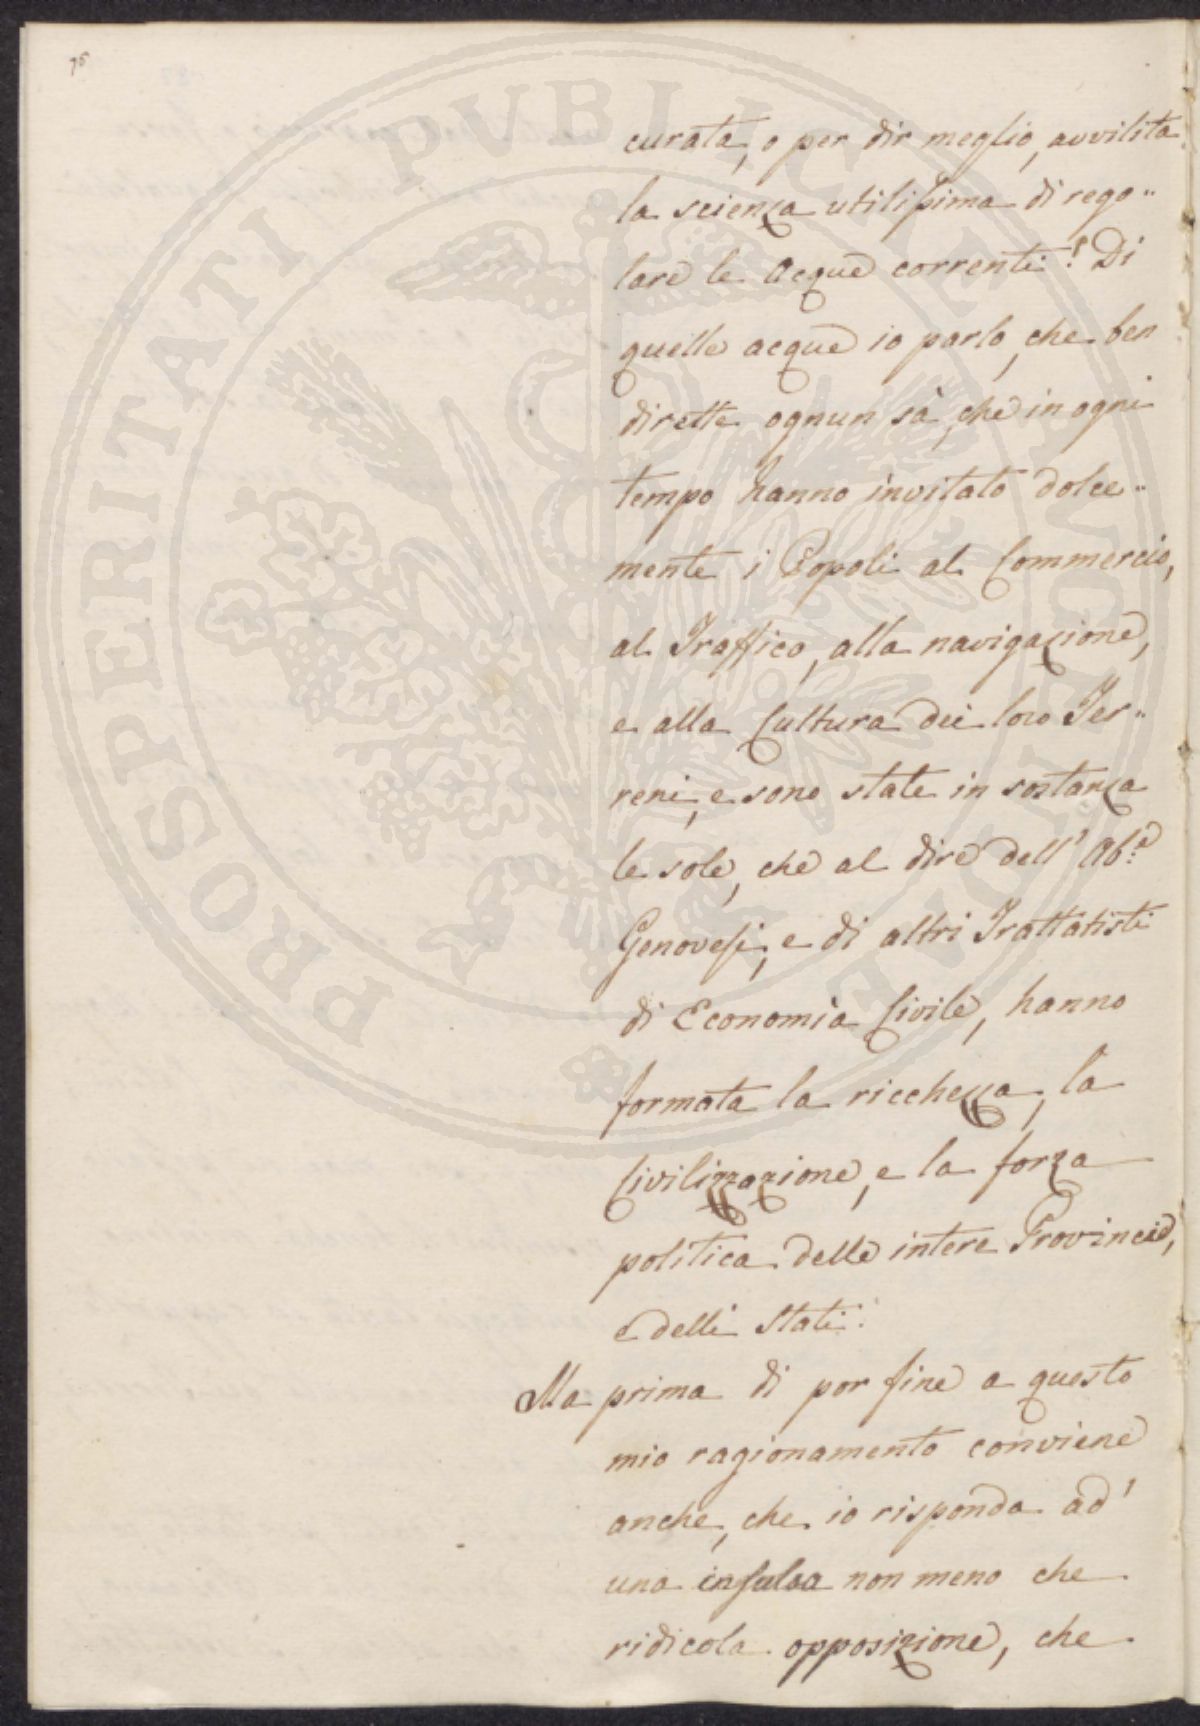 76
curata, o per dir meglio, avvilita
la scienza utilissima di rego„
lare le Acque correnti! Di
quelle acque io parlo, che ben
dirette ognun sà, che in ogni
tempo hanno invitato dolce„
mente i Popoli al Commercio,
al Traffico, alla navigazione,
e alla Cultura dei loro Ter„
reni, e sono state in sostanza
le sole, che al dire dell' Ab.e
Genovesi, e di altri Trattatisti
di Economia Civile, hanno
formata la ricchezza, la
Civilizzazione, e la forza
politica delle intere Provincie,
e delli Stati.
Ma prima di por fine a questo
mio ragionamento conviene
anche, che io risponda ad'
una insulsa non meno che
ridicola opposizione, che
PROSPERITATI PUBLICAE AUGENDAE